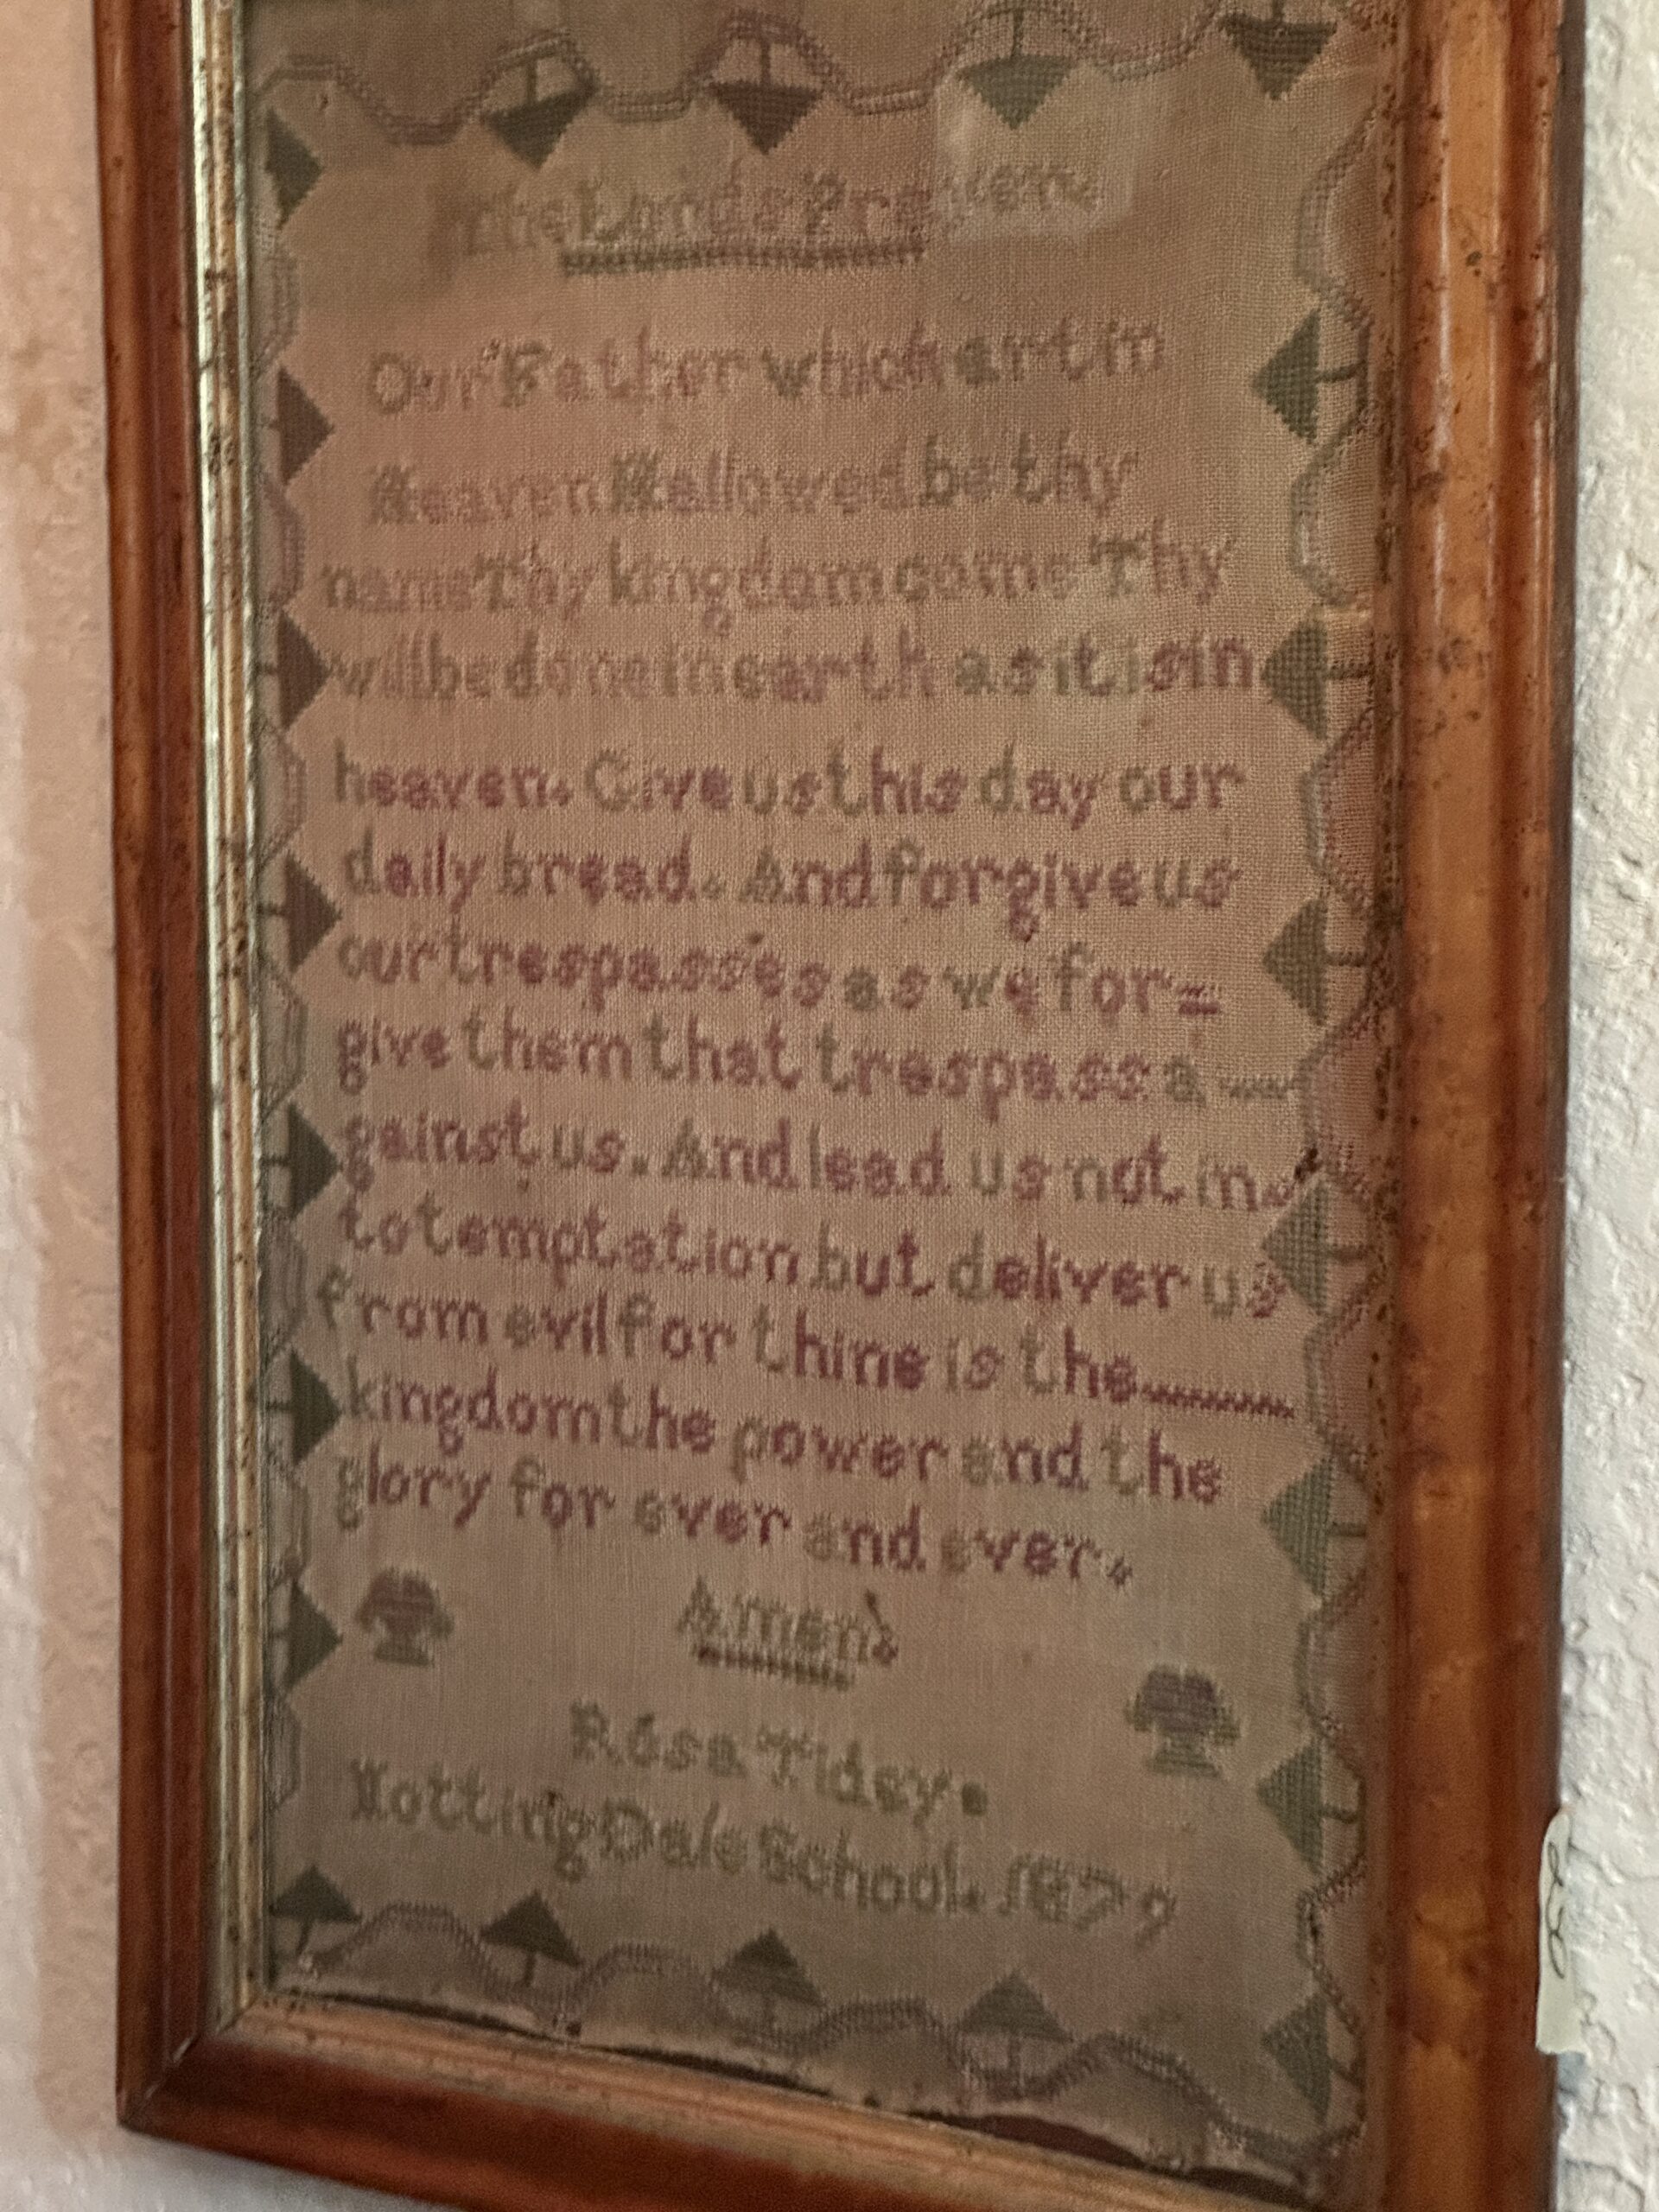 The Lords Prayer.
Our Father which art in
Heaven Hallowed be thy
name Thy kingdom come Thy
will be done in earth as it is in
heaven. Give us this day our
daily bread. And forgive us
our trespasses as we for=
give them that trespass a—
gainst us. And lead us not in
to temptation but deliver us
from evil for thine is the—
kingdom the power and the
glory for ever and ever.
Amen.
Rosa Tidey.
Notting Dale School. 1879